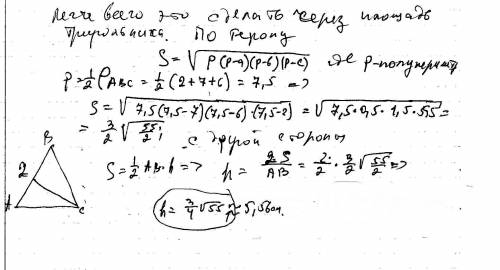 Легче всего это сделать через площадь
треугольника. По Герону
S = √p(p-a)(p-b)(p-c) где p-полупериметр
P = 1/2 P ABC = 1/2 (2+7+6) = 7,5 =>
S = √7,5(7,5-7)(7,5-6)(7,5-2) = √7,5·0,5·1,5·5,5 =
= 3/2 √55/2; с другой стороны
B
2
A
C
S = 1/2 AB·h => h = 2S/AB = 2/2 · 3/2 √55/2 =>
h = 3/4 √55 ≈ 5,56см.